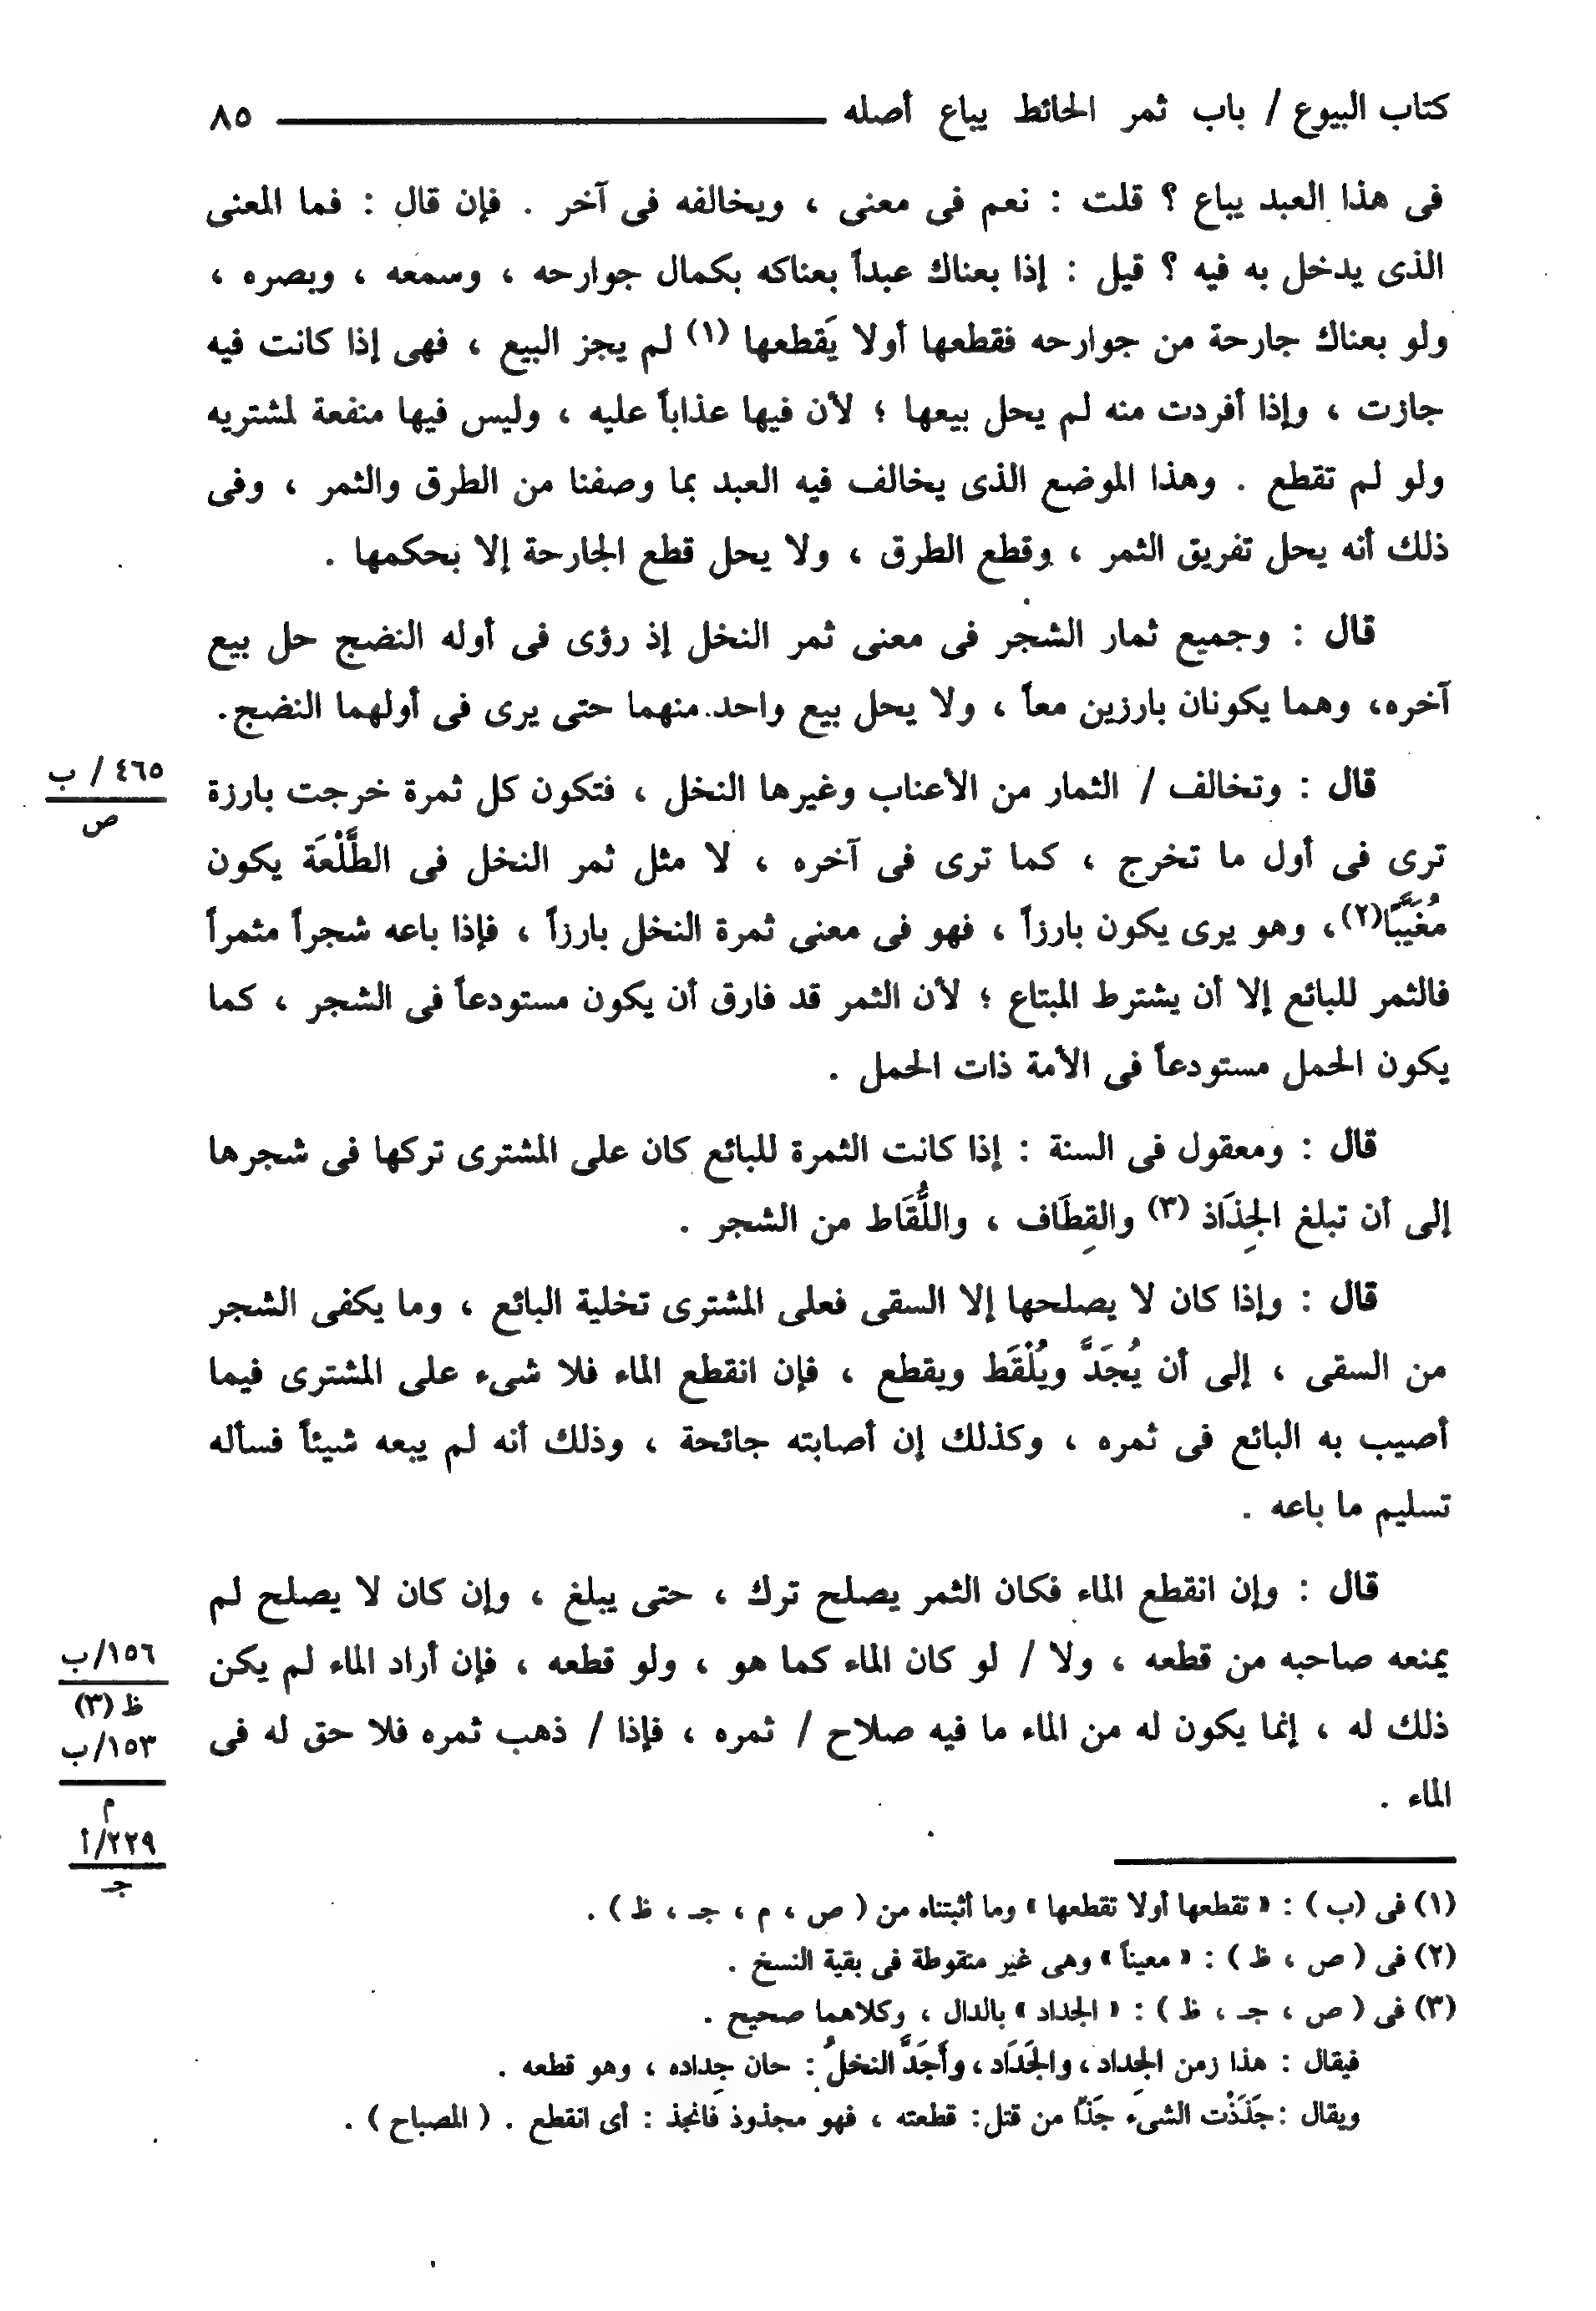 كتاب البيوع / باب ثمر الحائط يباع أصله ٨٥
فى هذا العبد يباع ؟ قلت : نعم فى معنى ، ويخالفه فى آخر . فإن قال : فما المعنى
الذى يدخل به فيه ؟ قيل : إذا بعناك عبداً بعناكه بكمال جوارحه ، وسمعه ، وبصره ،
ولو بعناك جارحة من جوارحه فقطعها أولا يَقطعها (١) لم يجز البيع ، فهى إذا كانت فيه
جازت ، وإذا أفردت منه لم يحل بيعها ؛ لأن فيها عذاباً عليه ، وليس فيها منفعة لمشتريه
ولو لم تقطع . وهذا الموضع الذى يخالف فيه العبد بما وصفنا من الطرق والثمر ، وفى
ذلك أنه يحل تفريق الثمر ، وقطع الطرق ، ولا يحل قطع الجارحة إلا بحكمها .
قال : وجميع ثمار الشجر فى معنى ثمر النخل إذ رؤى فى أوله النضج حل بيع
آخره، وهما يكونان بارزين معاً ، ولا يحل بيع واحد منهما حتى يرى فى أولهما النضج.
قال : وتخالف / الثمار من الأعناب وغيرها النخل ، فتكون كل ثمرة خرجت بارزة
٤٦٥ / ب
ص
ترى فى أول ما تخرج ، كما ترى فى آخره ، لا مثل ثمر النخل فى الطَّلْعَة يكون
مُغَيَّبًا(٢)، وهو يرى يكون بارزاً ، فهو فى معنى ثمرة النخل بارزاً ، فإذا باعه شجراً مثمراً
فالثمر للبائع إلا أن يشترط المبتاع ؛ لأن الثمر قد فارق أن يكون مستودعاً فى الشجر ، كما
يكون الحمل مستودعاً فى الأمة ذات الحمل .
قال : ومعقول فى السنة : إذا كانت الثمرة للبائع كان على المشترى تركها فى شجرها
إلى أن تبلغ الجِذَاذ (٣) والقِطَاف ، واللُّقَاط من الشجر .
قال : وإذا كان لا يصلحها إلا السقى فعلى المشترى تخلية البائع ، وما يكفى الشجر
من السقى ، إلى أن يُجَدَّ ويُلْقَط ويقطع ، فإن انقطع الماء فلا شىء على المشترى فيما
أصيب به البائع فى ثمره ، وكذلك إن أصابته جائحة ، وذلك أنه لم يبعه شيئاً فسأله
تسليم ما باعه .
قال : وإن انقطع الماء فكان الثمر يصلح ترك ، حتى يبلغ ، وإن كان لا يصلح لم
يمنعه صاحبه من قطعه ، ولا / لو كان الماء كما هو ، ولو قطعه ، فإن أراد الماء لم يكن
١٥٦/ب
ظ (٣)
ذلك له ، إنما يكون له من الماء ما فيه صلاح / ثمره ، فإذا / ذهب ثمره فلا حق له فى
١٥٣/ب
م
الماء .
٢٢٩/أ
جـ
(١) فى (ب ) : « تقطعها أولا تقطعها » وما أثبتناه من ( ص ، م ، جـ ، ظ ) .
(٢) فى ( ص ، ظ ) : « معيناً » وهى غير منقوطة فى بقية النسخ .
(٣) فى ( ص ، جـ ، ظ ) : « الجداد » بالدال ، وكلاهما صحيح .
فيقال : هذا زمن الجِداد، والجَدَاد، وأَجَدَّ النخلُ : حان جِداده ، وهو قطعه .
ويقال :جَذَذْت الشىء جَذّا من قتل: قطعته ، فهو مجذوذ فانجذ : أى انقطع . ( المصباح ) .